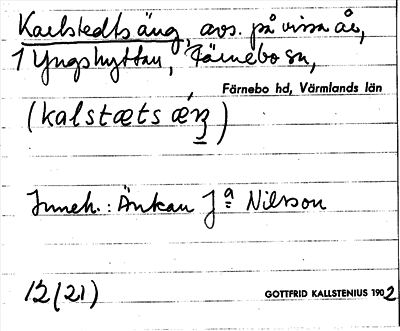 Karlstedts äng, avs. på vissa år,
1 Yngshyttan, Färnebo sn,
Färnebo hd, Värmlands län
(kalstæts ǽŋ)
Inneh.: Änkan J a Nilsson
12(21)
GOTTFRID KALLSTENIUS 1902